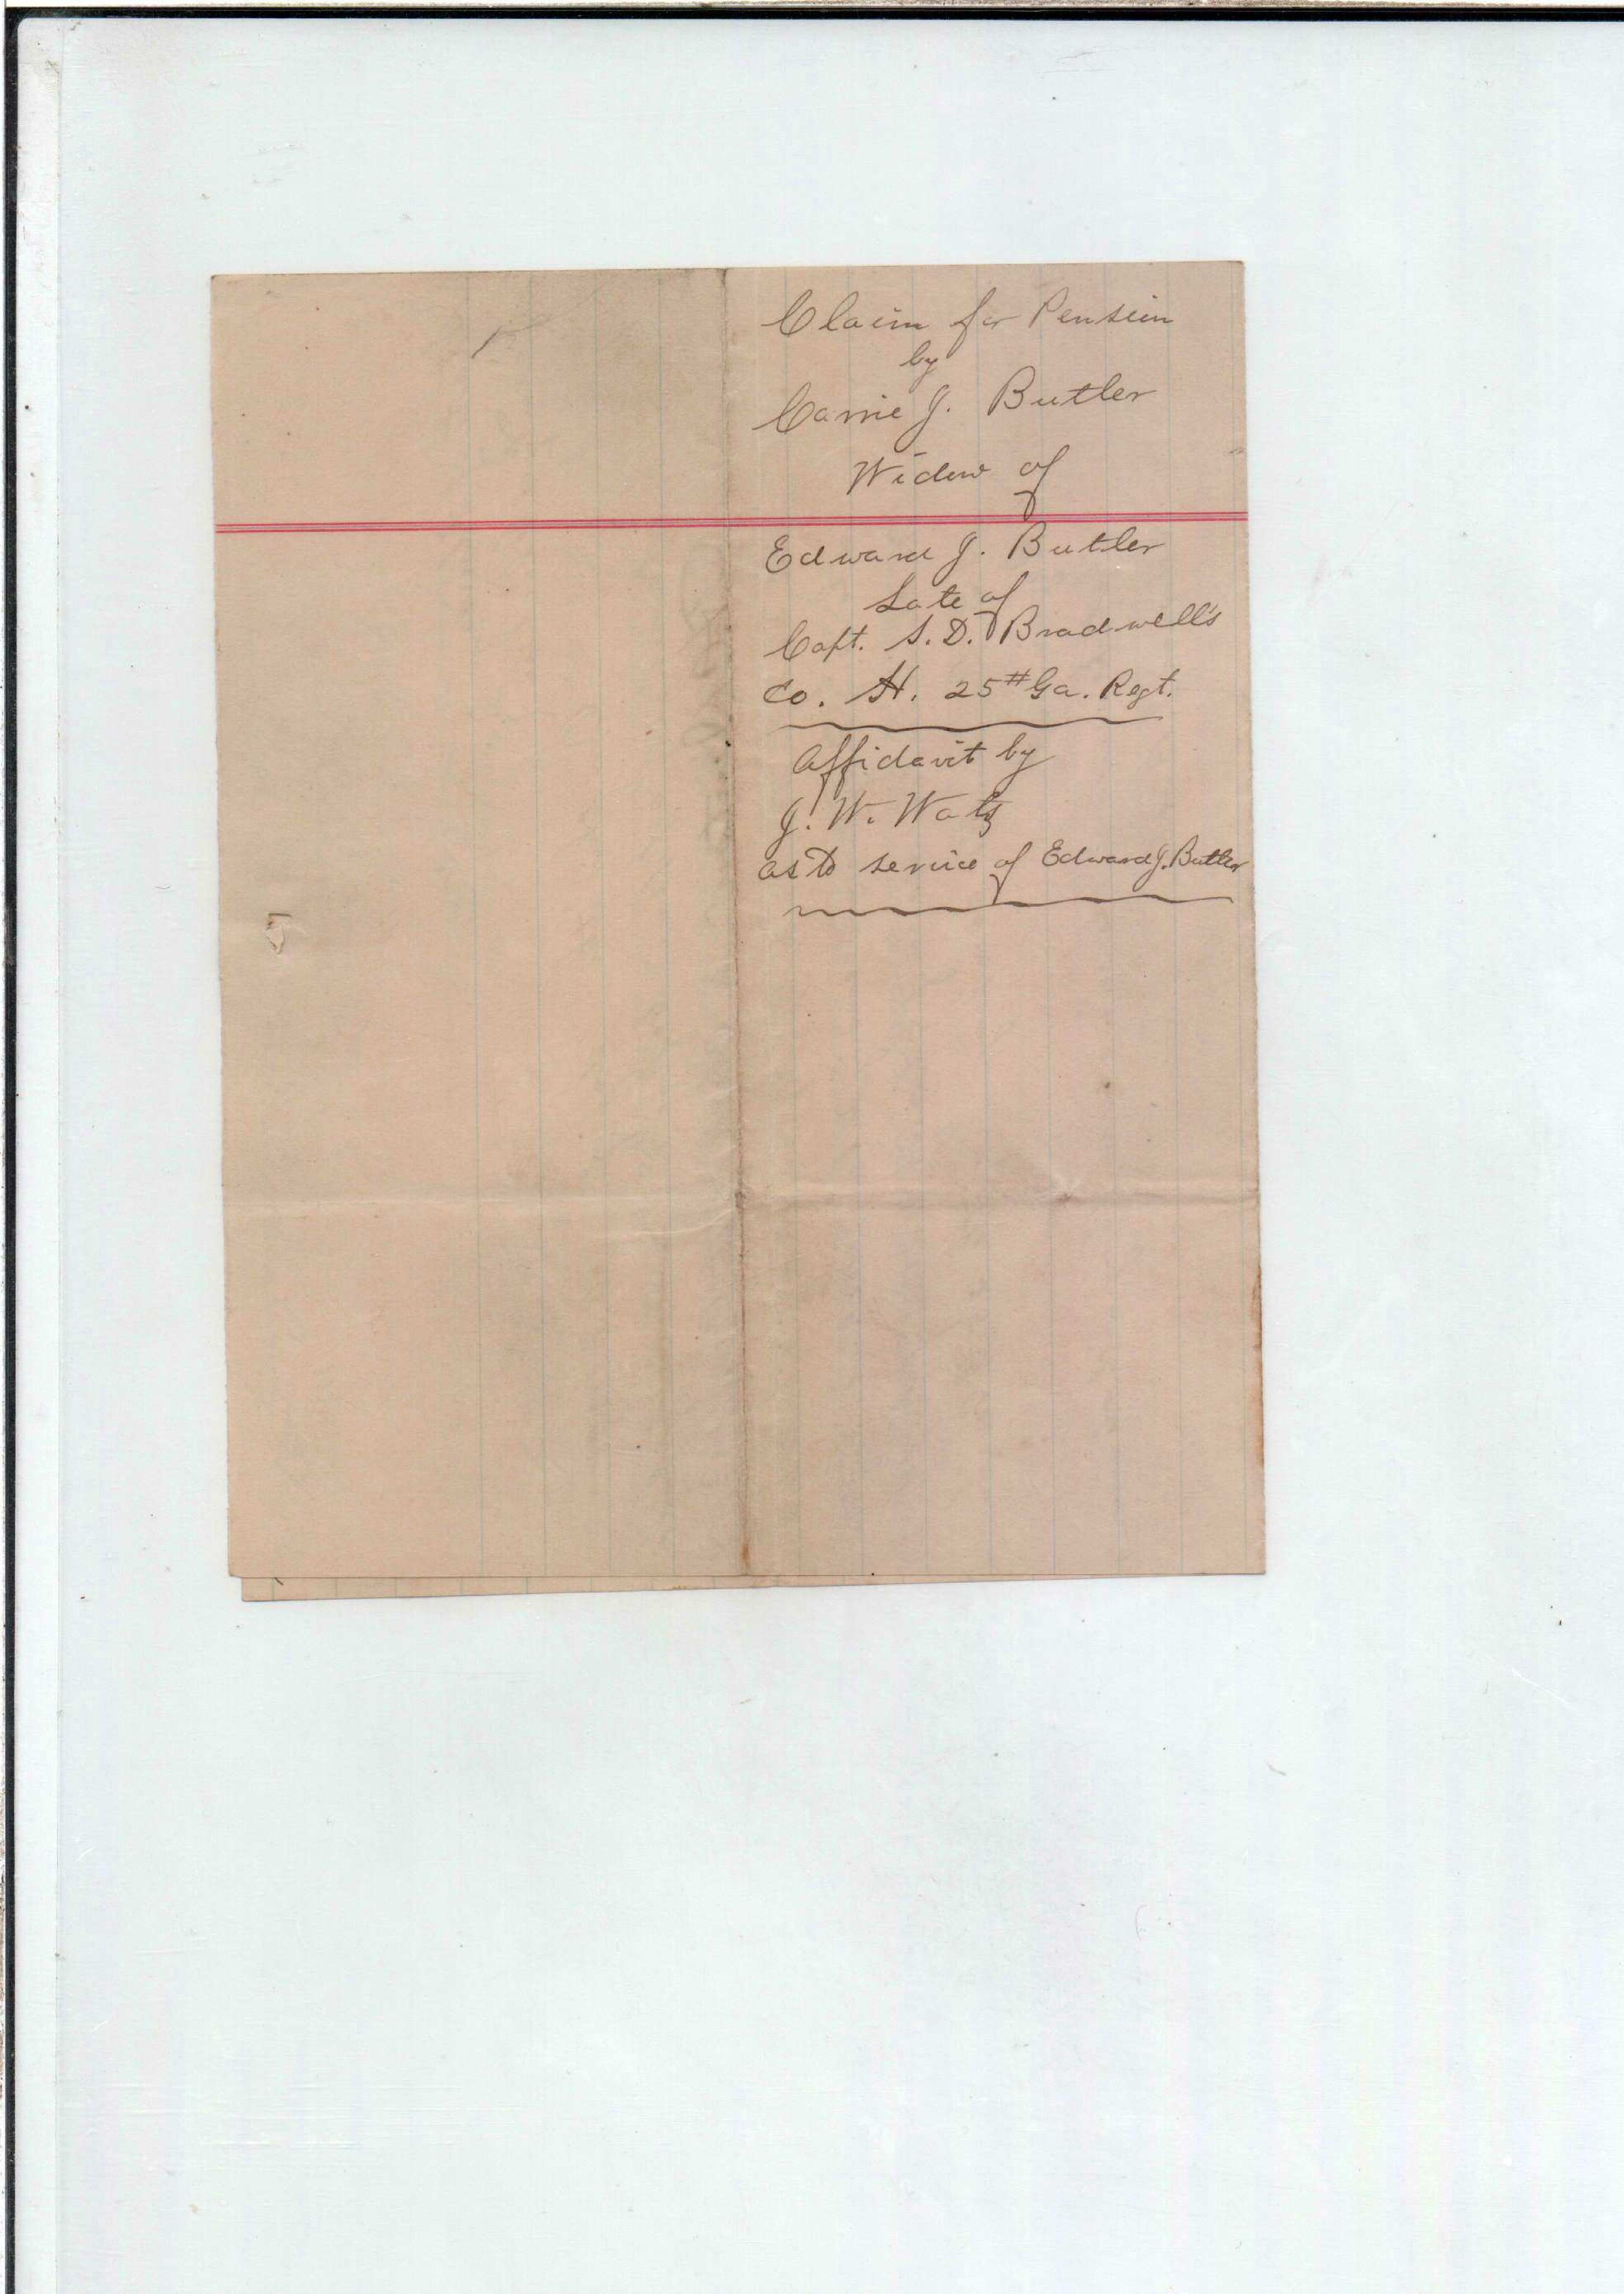 Claim for Pension
by
Carrie J. Butler
Widow of
Edward J. Butler
Late of
Capt. S. D. Bradwell's
Co. H. 25th Ga. Regt.
Affidavit by
J. W. Waty
as to service of Edward J. Butler